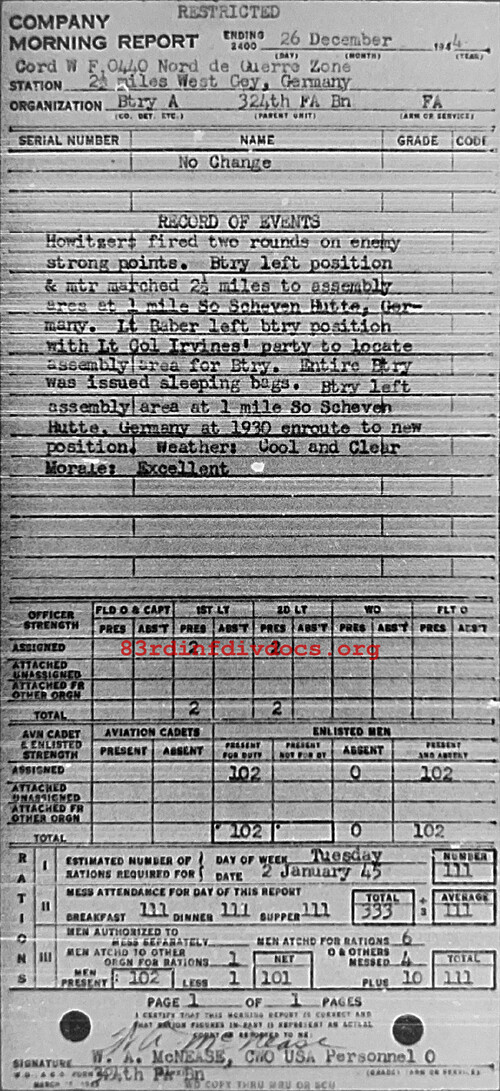 RESTRICTED
COMPANY
MORNING REPORT ENDING 2400 26 December 1944
(DAY) (MONTH) (YEAR)
Cord W F.0440 Nord de Guerre Zone
STATION 2½ miles West Gey, Germany
ORGANIZATION Btry A 324th FA Bn FA
(CO. DET. ETC.) (PARENT UNIT) (ARM OR SERVICE)
SERIAL NUMBER NAME GRADE CODE
No Change
RECORD OF EVENTS
Howitzers fired two rounds on enemy
strong points. Btry left position
& mtr marched 2½ miles to assembly
area at 1 mile So Scheven Hutte, Ger-
many. Lt Baber left btry position
with Lt Col Irvines' party to locate
assembly area for Btry. Entire Btry
was issued sleeping bags. Btry left
assembly area at 1 mile So Scheven
Hutte, Germany at 1930 enroute to new
position. Weather: Cool and Clear
Morale: Excellent
OFFICER STRENGTH FLD O & CAPT 1ST LT 2D LT WO FLT O
PRES ABS'T PRES ABS'T PRES ABS'T PRES ABS'T PRES ABS'T
ASSIGNED 2 2
83rdinfdivdocs.org
ATTACHED UNASSIGNED
ATTACHED FR OTHER ORGN
TOTAL 2 2
AVN CADET & ENLISTED STRENGTH AVIATION CADETS ENLISTED MEN
PRESENT ABSENT PRESENT FOR DUTY PRESENT NOT FOR DY ABSENT PRESENT AND ABSENT
ASSIGNED 102 0 102
ATTACHED UNASSIGNED
ATTACHED FR OTHER ORGN
TOTAL 102 0 102
RATIONS
I ESTIMATED NUMBER OF RATIONS REQUIRED FOR DAY OF WEEK Tuesday NUMBER
DATE 2 January 45 111
II MESS ATTENDANCE FOR DAY OF THIS REPORT
BREAKFAST 111 DINNER 111 SUPPER 111 TOTAL 333 ÷ 3 AVERAGE 111
III MEN AUTHORIZED TO MESS SEPARATELY MEN ATCHD FOR RATIONS 6
MEN ATCHD TO OTHER ORGN FOR RATIONS 1 NET O & OTHERS MESSED 4 TOTAL
MEN PRESENT 102 LESS 1 101 PLUS 10 111
PAGE 1 OF 1 PAGES
I CERTIFY THAT THIS MORNING REPORT IS CORRECT AND
THAT RATION FIGURES IN PART III REPRESENT AN ACTUAL
COUNT AS REPORTED TO ME:
W A McNease
SIGNATURE W. A. McNEASE, CWO USA Personnel O
324th FA Bn